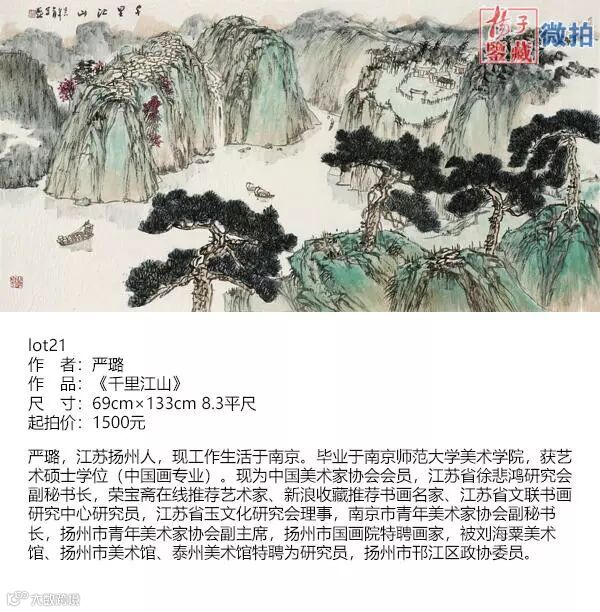 千里江山
揚子
鑒藏
微拍
lot21
作 者：严璐
作 品：《千里江山》
尺 寸：69cm×133cm 8.3平尺
起拍价：1500元
严璐，江苏扬州人，现工作生活于南京。毕业于南京师范大学美术学院，获艺
术硕士学位（中国画专业）。现为中国美术家协会会员，江苏省徐悲鸿研究会
副秘书长，荣宝斋在线推荐艺术家、新浪收藏推荐书画名家、江苏省文联书画
研究中心研究员，江苏省玉文化研究会理事，南京市青年美术家协会副秘书
长，扬州市青年美术家协会副主席，扬州市国画院特聘画家，被刘海粟美术
馆、扬州市美术馆、泰州美术馆特聘为研究员，扬州市邗江区政协委员。
大数跨境